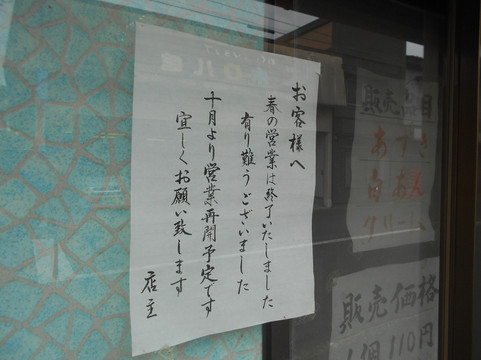 お客様へ
春の営業は終了いたしました
有り難うございました
十月より営業再開予定です
宜しくお願い致します
店主
販売
目
あずき
白あん
クリーム
販売価格
1個110円